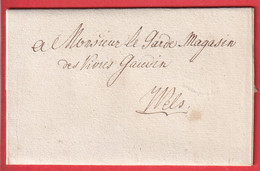 a Monsieur le Garde Magasin
des Vivres Gauvin
Wels